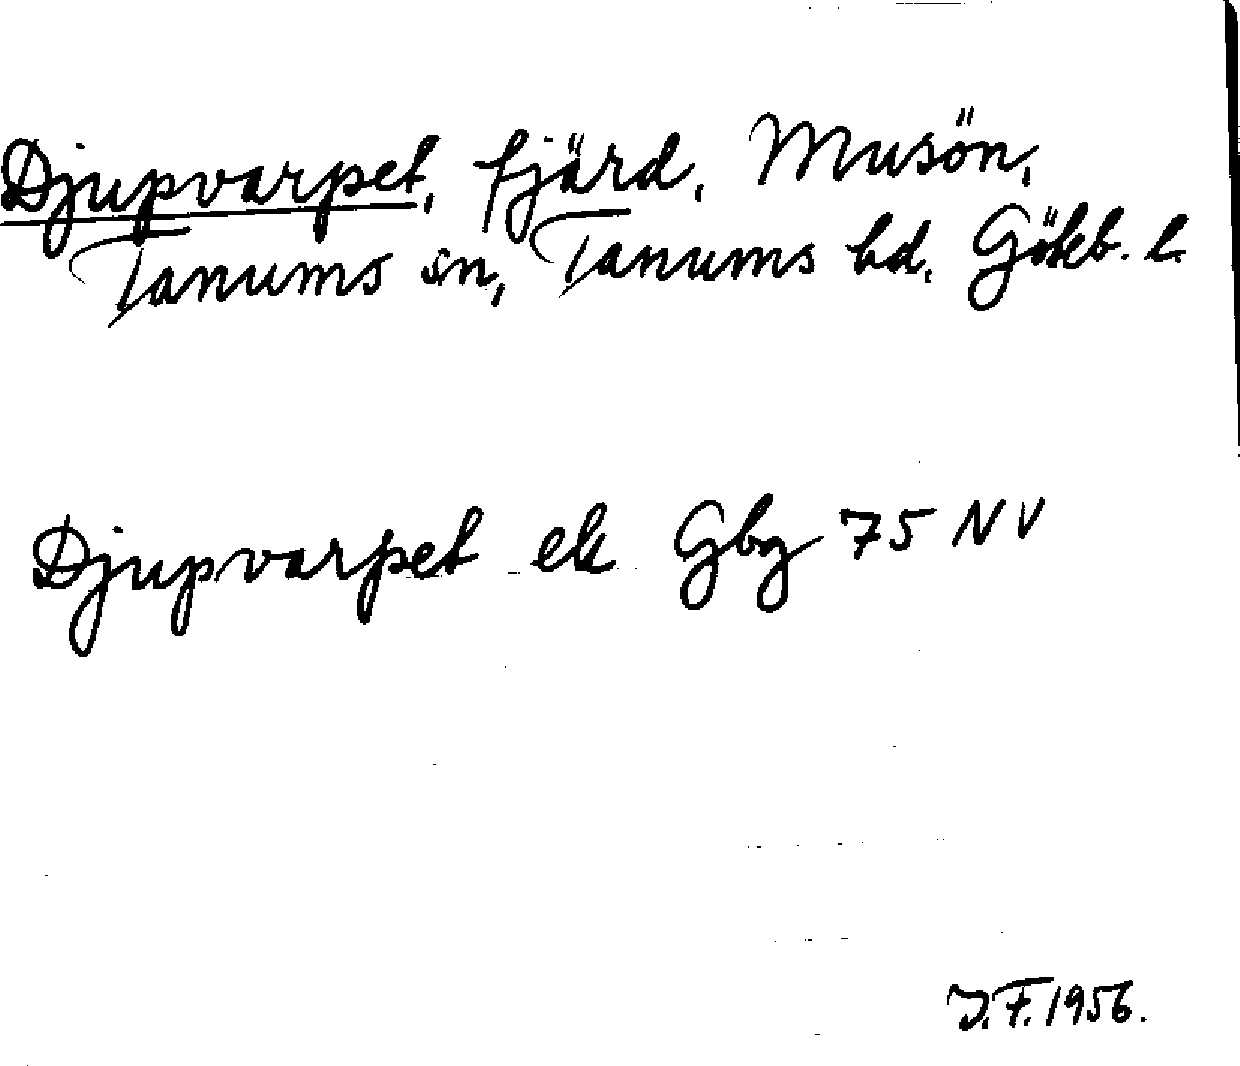 Djupvarpet, fjärd, Musön,
Tanums sn, Tanums hd, Göteb. l.
Djupvarpet ek Gbg 75 NV
J.F. 1956.